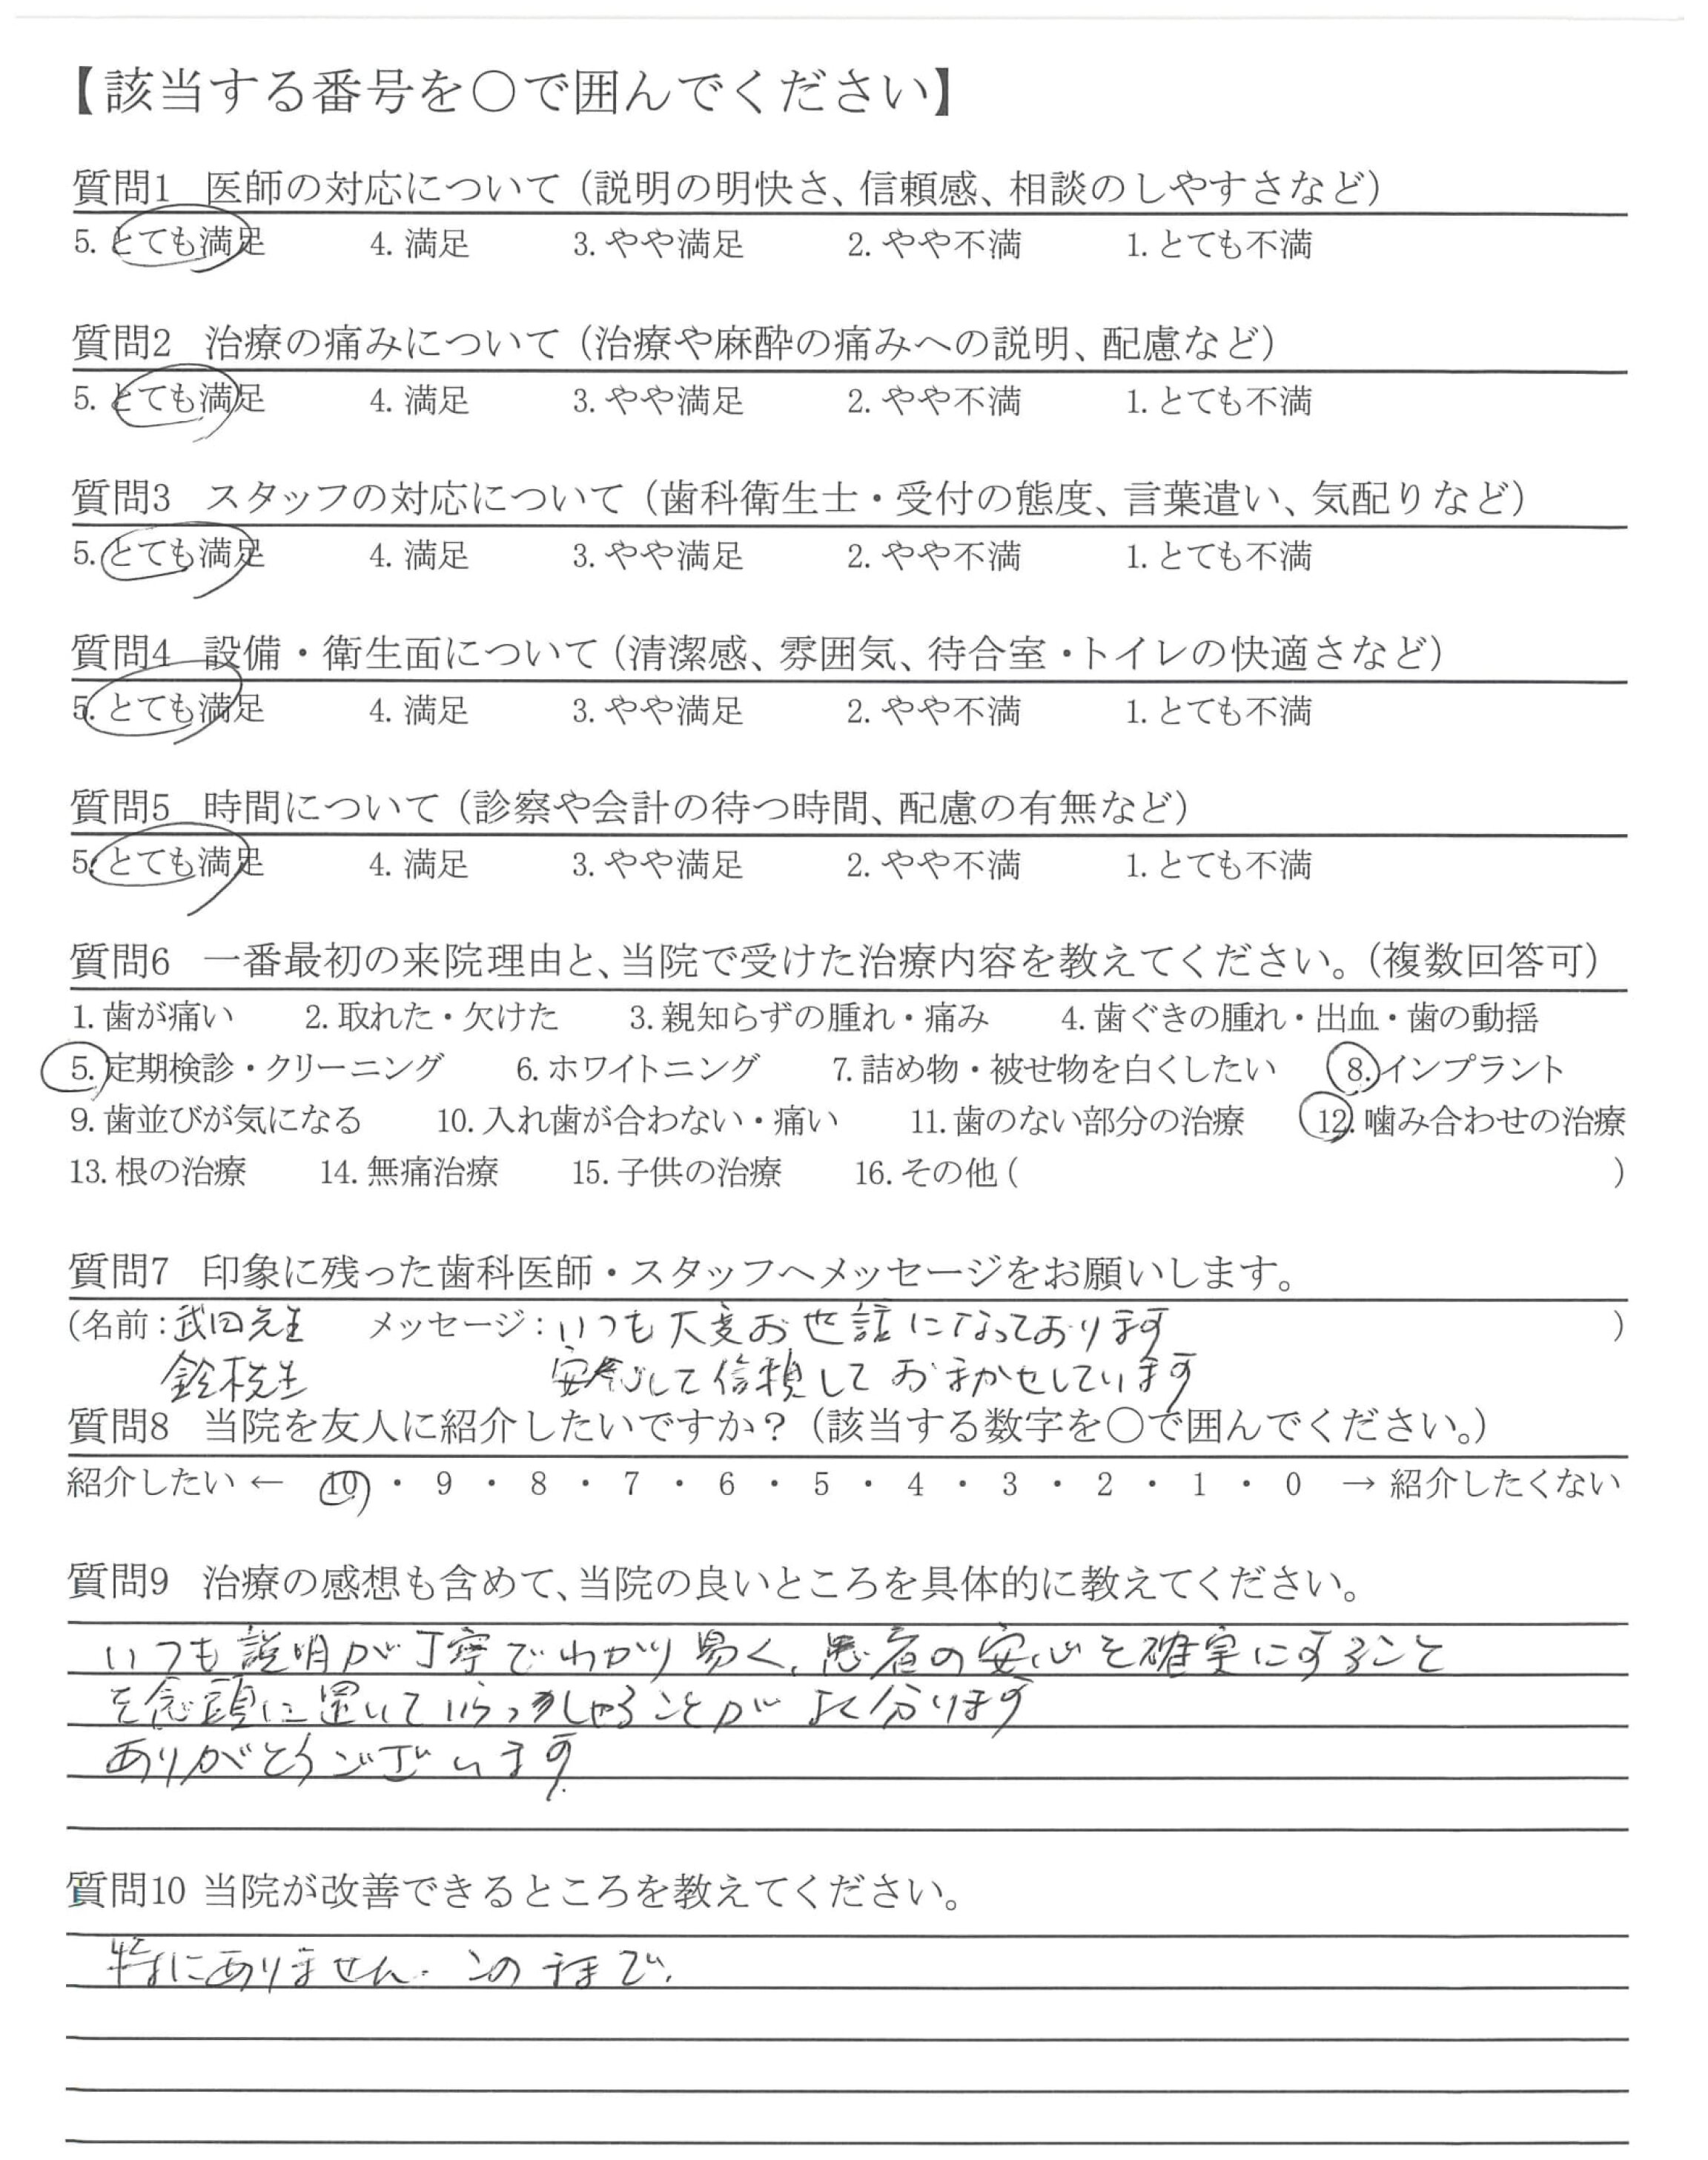 【該当する番号を○で囲んでください】
質問1 医師の対応について（説明の明快さ、信頼感、相談のしやすさなど）
5. とても満足 4. 満足 3. やや満足 2. やや不満 1. とても不満
質問2 治療の痛みについて（治療や麻酔の痛みへの説明、配慮など）
5. とても満足 4. 満足 3. やや満足 2. やや不満 1. とても不満
質問3 スタッフの対応について（歯科衛生士・受付の態度、言葉遣い、気配りなど）
5. とても満足 4. 満足 3. やや満足 2. やや不満 1. とても不満
質問4 設備・衛生面について（清潔感、雰囲気、待合室・トイレの快適さなど）
5. とても満足 4. 満足 3. やや満足 2. やや不満 1. とても不満
質問5 時間について（診察や会計の待つ時間、配慮の有無など）
5. とても満足 4. 満足 3. やや満足 2. やや不満 1. とても不満
質問6 一番最初の来院理由と、当院で受けた治療内容を教えてください。（複数回答可）
1. 歯が痛い 2. 取れた・欠けた 3. 親知らずの腫れ・痛み 4. 歯ぐきの腫れ・出血・歯の動揺
5. 定期検診・クリーニング 6. ホワイトニング 7. 詰め物・被せ物を白くしたい 8. インプラント
9. 歯並びが気になる 10. 入れ歯が合わない・痛い 11. 歯のない部分の治療 12. 噛み合わせの治療
13. 根の治療 14. 無痛治療 15. 子供の治療 16. その他 ( )
質問7 印象に残った歯科医師・スタッフへメッセージをお願いします。
(名前：武田先生 メッセージ：いつも大変お世話になっております )
鈴木先生 安心して信頼しておまかせしています
質問8 当院を友人に紹介したいですか？（該当する数字を○で囲んでください。）
紹介したい ← 10 ・ 9 ・ 8 ・ 7 ・ 6 ・ 5 ・ 4 ・ 3 ・ 2 ・ 1 ・ 0 → 紹介したくない
質問9 治療の感想も含めて、当院の良いところを具体的に教えてください。
いつも説明が丁寧でわかり易く、患者の安心を確実にすること
を念頭に置いていらっしゃることがよく分ります
ありがとうございます
質問10 当院が改善できるところを教えてください。
特にありません. このままで.